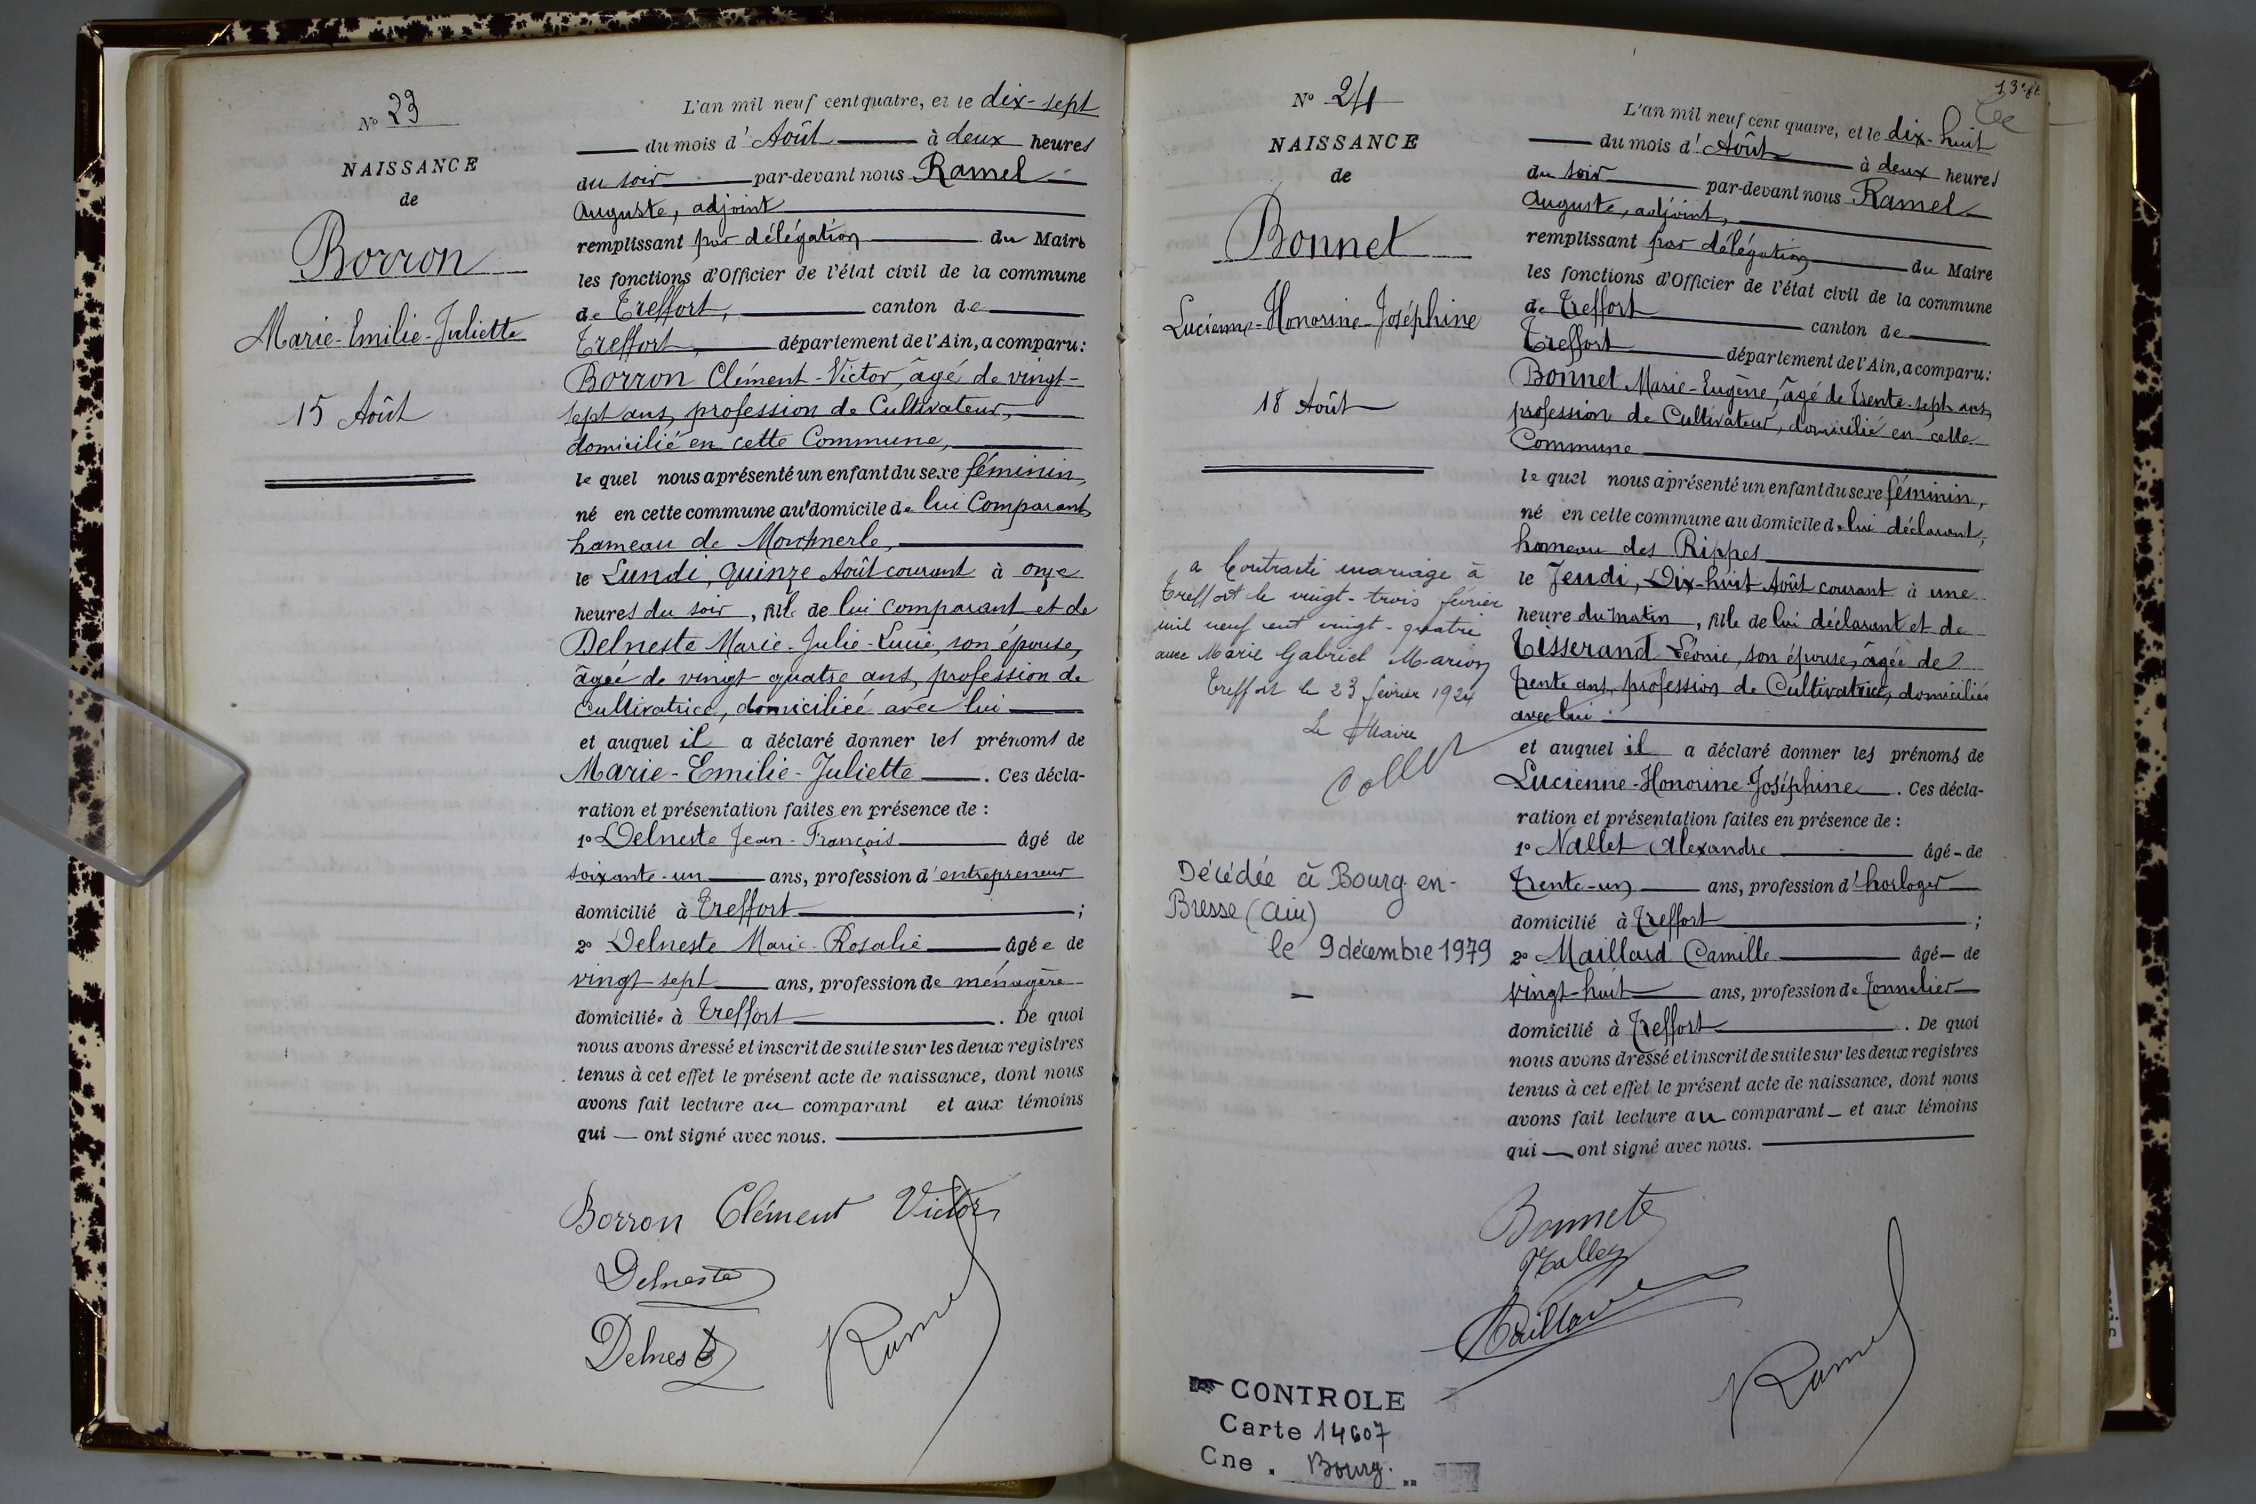 N° 23
NAISSANCE
de
Borron
Marie-Emilie-Juliette
15 Août
L'an mil neuf cent quatre, et le dix-sept
du mois d'Août à deux heures
du soir par-devant nous Ramel
Auguste, adjoint
remplissant par délégation du Maire
les fonctions d'Officier de l'état civil de la commune
de Treffort, canton de
Treffort, département de l'Ain, a comparu:
Borron Clément-Victor, âgé de vingt-
sept ans, profession de Cultivateur,
domicilié en cette Commune,
le quel nous a présenté un enfant du sexe féminin,
né en cette commune au domicile de lui Comparant,
hameau de
le Lundi, quinze Août courant à onze
heures du soir, fille de lui comparant et de
Delneste Marie-Julie-Lucie, son épouse,
âgée de vingt-quatre ans, profession de
Cultivatrice, domiciliée avec lui
et auquel il a déclaré donner les prénoms de
Marie-Emilie-Juliette. Ces décla-
ration et présentation faites en présence de:
1° Delneste Jean-François âgé de
soixante-un ans, profession d'entrepreneur
domicilié à Treffort;
2° Delneste Marie-Rosalie âgée de
vingt-sept ans, profession de ménagère
domiciliée à Treffort. De quoi
nous avons dressé et inscrit de suite sur les deux registres
tenus à cet effet le présent acte de naissance, dont nous
avons fait lecture au comparant et aux témoins
qui ont signé avec nous.
Borron Clément Victor
Delneste
Delneste
Ramel
N° 24
NAISSANCE
de
Bonnet
Lucienne-Honorine-Joséphine
18 Août
a Contracté mariage à
Treffort le vingt-trois février
mil neuf cent vingt-quatre
avec Marie Gabriel Marion
Treffort le 23 février 1924
Le Maire
Décédée à Bourg-en-
Bresse (Ain)
le 9 décembre 1979
L'an mil neuf cent quatre, et le dix-huit
du mois d'Août à deux heures
du soir par-devant nous Ramel
Auguste, adjoint,
remplissant par délégation du Maire
les fonctions d'Officier de l'état civil de la commune
de Treffort canton de
Treffort département de l'Ain, a comparu:
Bonnet Marie-Eugène, âgé de trente-sept ans,
profession de Cultivateur, domicilié en cette
Commune
le quel nous a présenté un enfant du sexe féminin,
né en cette commune au domicile de lui déclarant,
hameau des Rippes
le Jeudi, Dix-huit Août courant à une
heure du matin, fille de lui déclarant et de
Tisserand Léonie, son épouse, âgée de
trente ans, profession de Cultivatrice, domiciliée
avec lui
et auquel il a déclaré donner les prénoms de
Lucienne-Honorine-Joséphine. Ces décla-
ration et présentation faites en présence de:
1° Nallet Alexandre âgé de
trente-un ans, profession d'horloger
domicilié à Treffort;
2° Maillard Camille âgé de
vingt-huit ans, profession de tonnelier
domicilié à Treffort. De quoi
nous avons dressé et inscrit de suite sur les deux registres
tenus à cet effet le présent acte de naissance, dont nous
avons fait lecture au comparant et aux témoins
qui ont signé avec nous.
Bonnet
Nallet
Maillard
Ramel
CONTROLE
Carte 14607
Cne. Bourg.